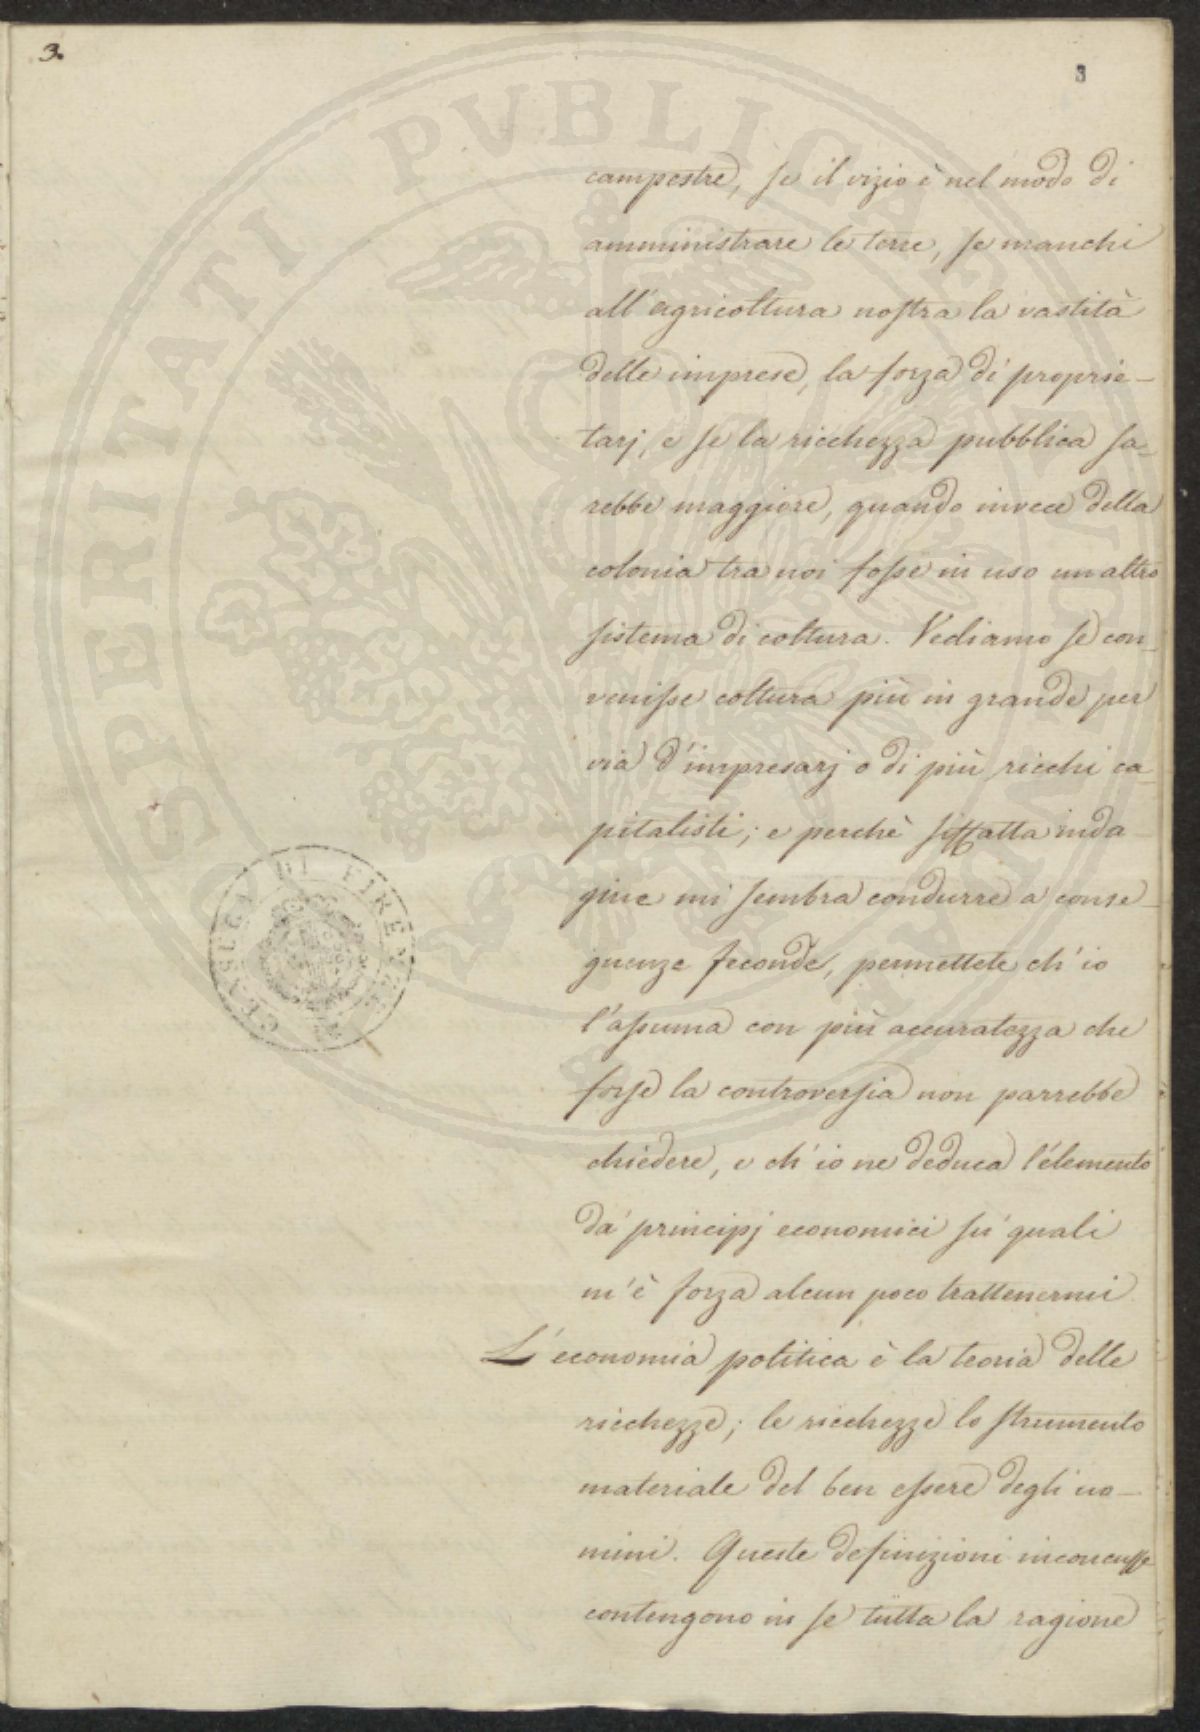 3.
3
campestre, se il vizio è nel modo di
amministrare le terre, se manchi
all'agricoltura nostra la vastità
delle imprese, la forza di proprie-
tarj, e se la ricchezza pubblica sa-
rebbe maggiore, quando invece della
colonia tra noi fosse in uso un altro
sistema di coltura. Vediamo se con-
venisse coltura più in grande per
via d'impresarj o di più ricchi ca-
pitalisti; e perchè siffatta inda-
gine mi sembra condurre a conse-
guenze feconde, permettete ch'io
l'assuma con più accuratezza che
forse la controversia non parrebbe
chiedere, e ch'io ne deduca l'elemento
da' principj economici su' quali
m'è forza alcun poco trattenermi
L'economia politica è la teoria delle
ricchezze; le ricchezze lo strumento
materiale del ben essere degli uo-
mini. Queste definizioni inconcusse
contengono in se tutta la ragione
PUBLICAE
SPERITATI
DI FIRENZE